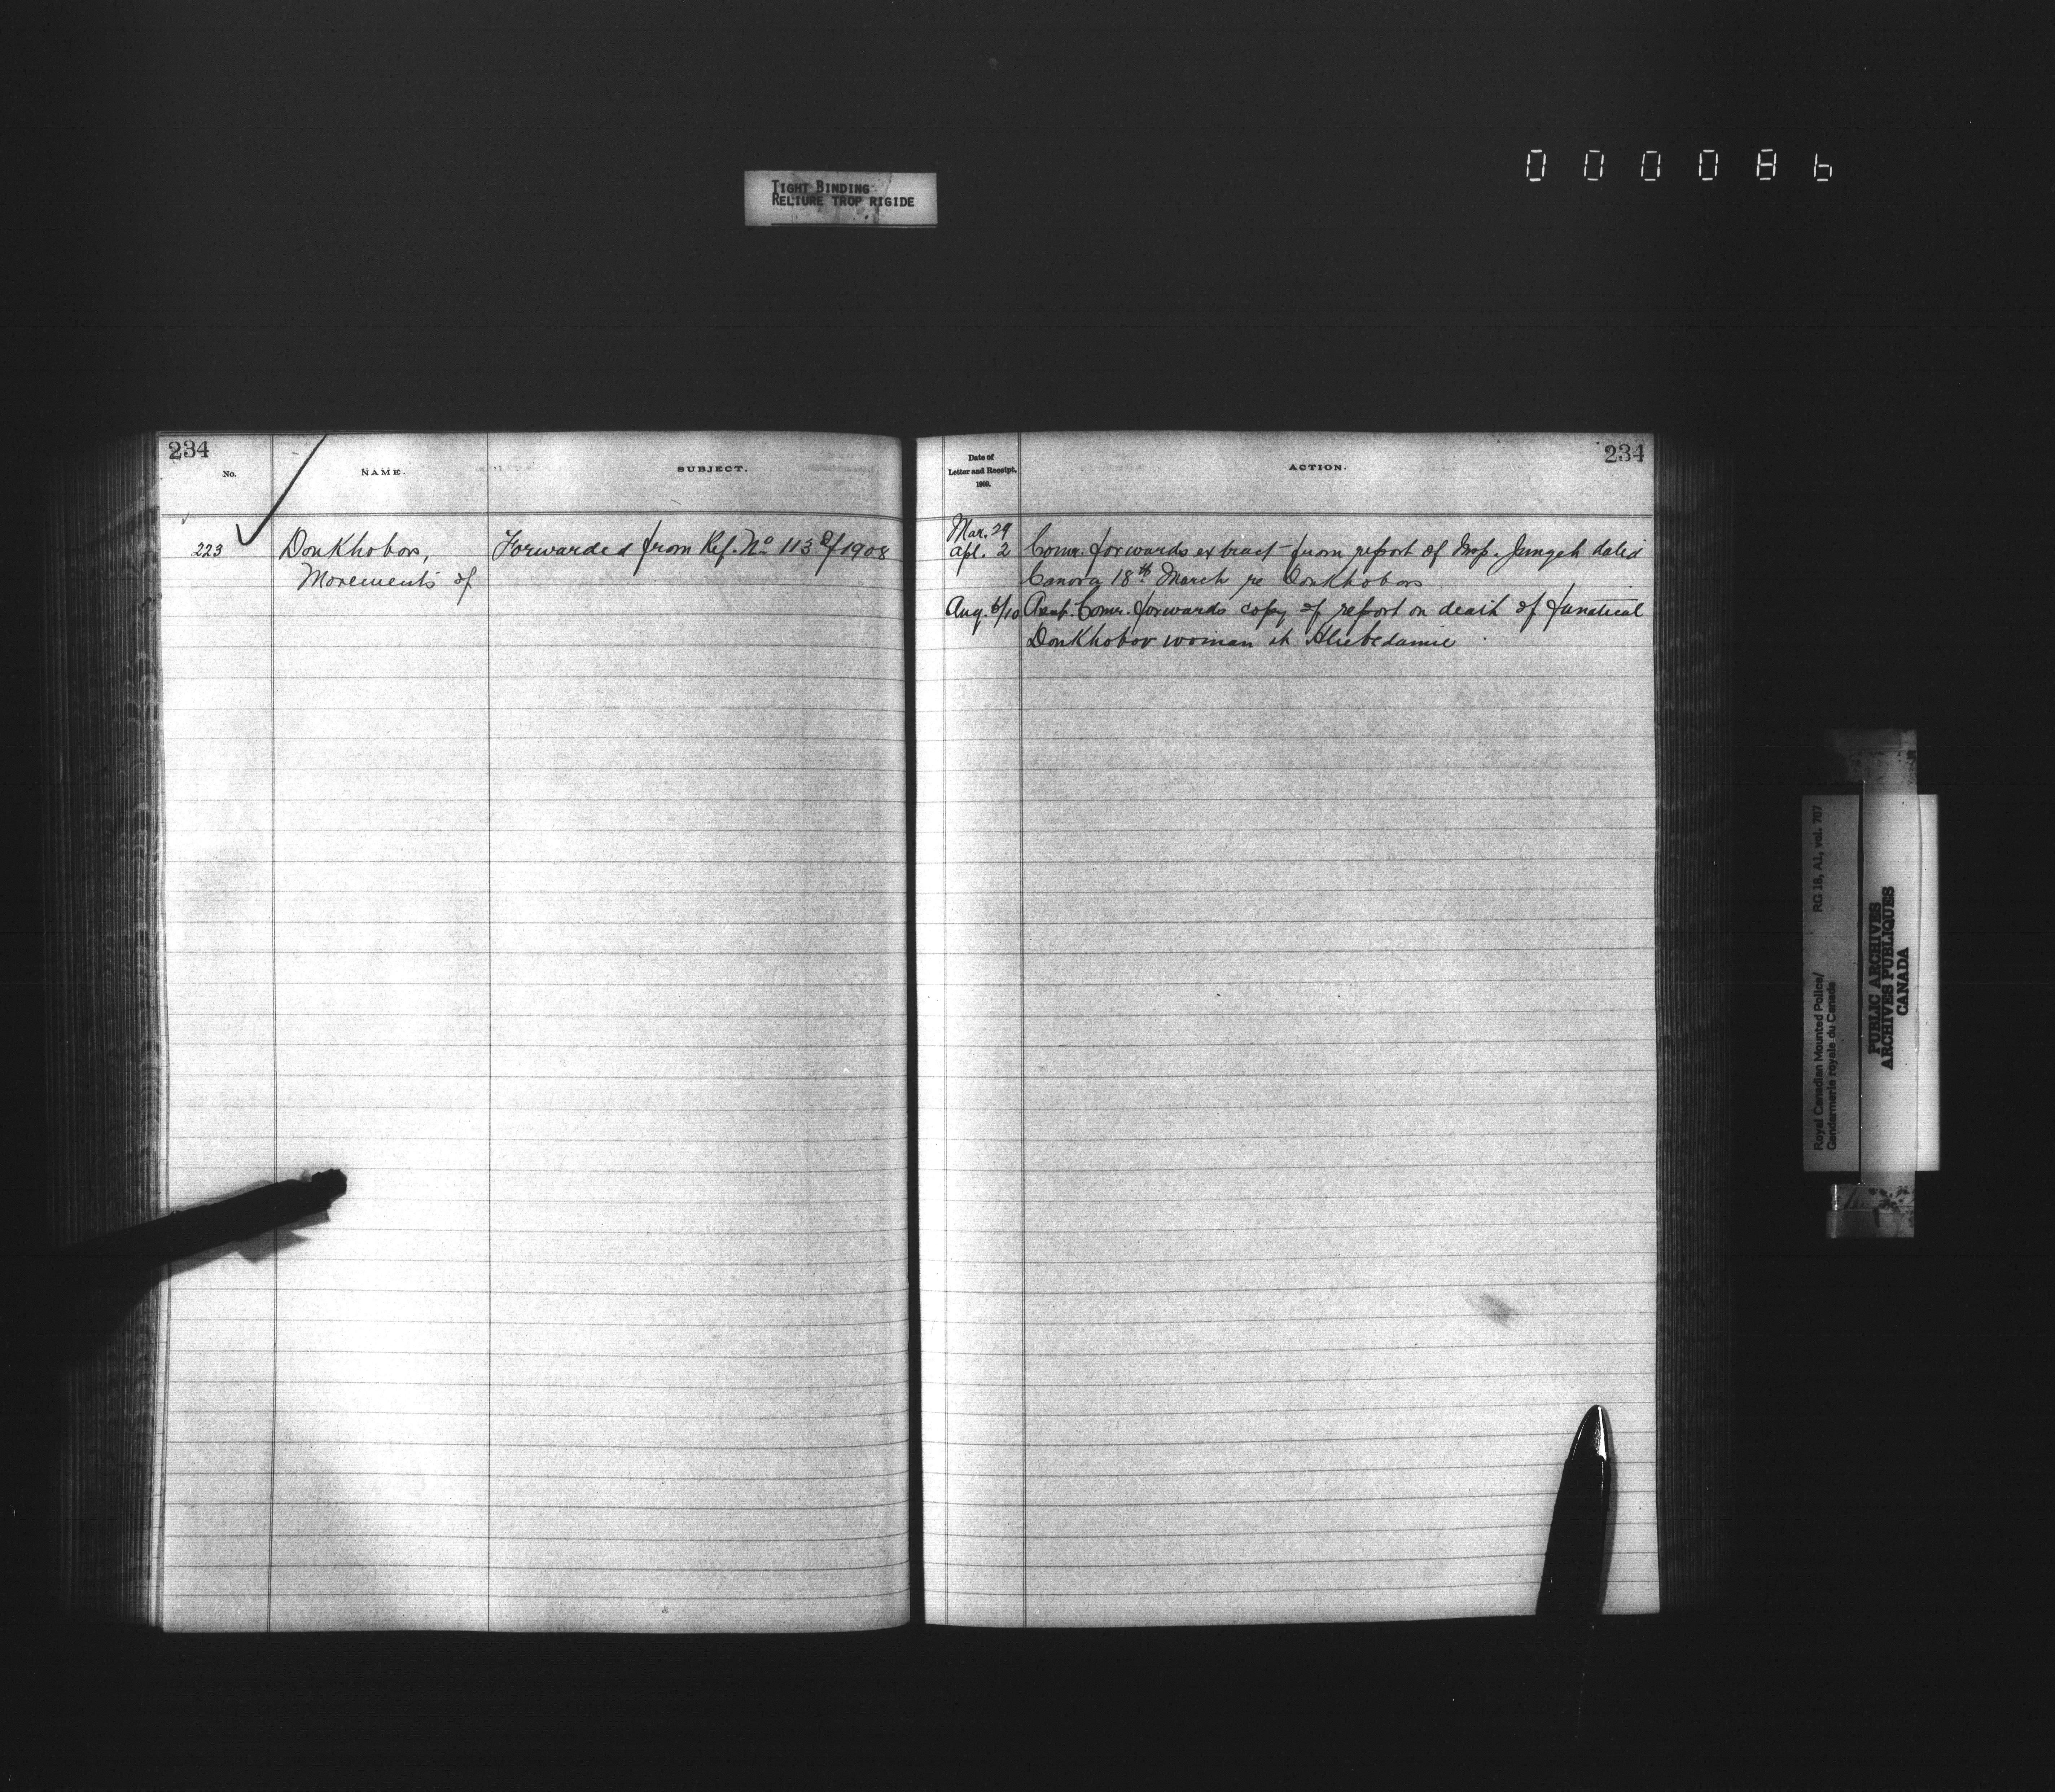 000086
TIGHT BINDING
RELIURE TROP RIGIDE
234
No.
NAME.
SUBJECT.
223
Doukhobors,
Movements of
Forwarded from Ref. No 113 of 1908
Date of
Letter and Receipt,
1909.
ACTION.
234
Mar. 29
Apl. 2
Comr. forwards extract from report of Insp. Junget dated
Canora 18th March re Doukhobors
Aug. 6/10
Asst. Comr. forwards copy of report on death of fanatical
Doukhobor woman at
Royal Canadian Mounted Police/
Gendarmerie royale du Canada
RG 18, A1, vol. 707
PUBLIC ARCHIVES
ARCHIVES PUBLIQUES
CANADA